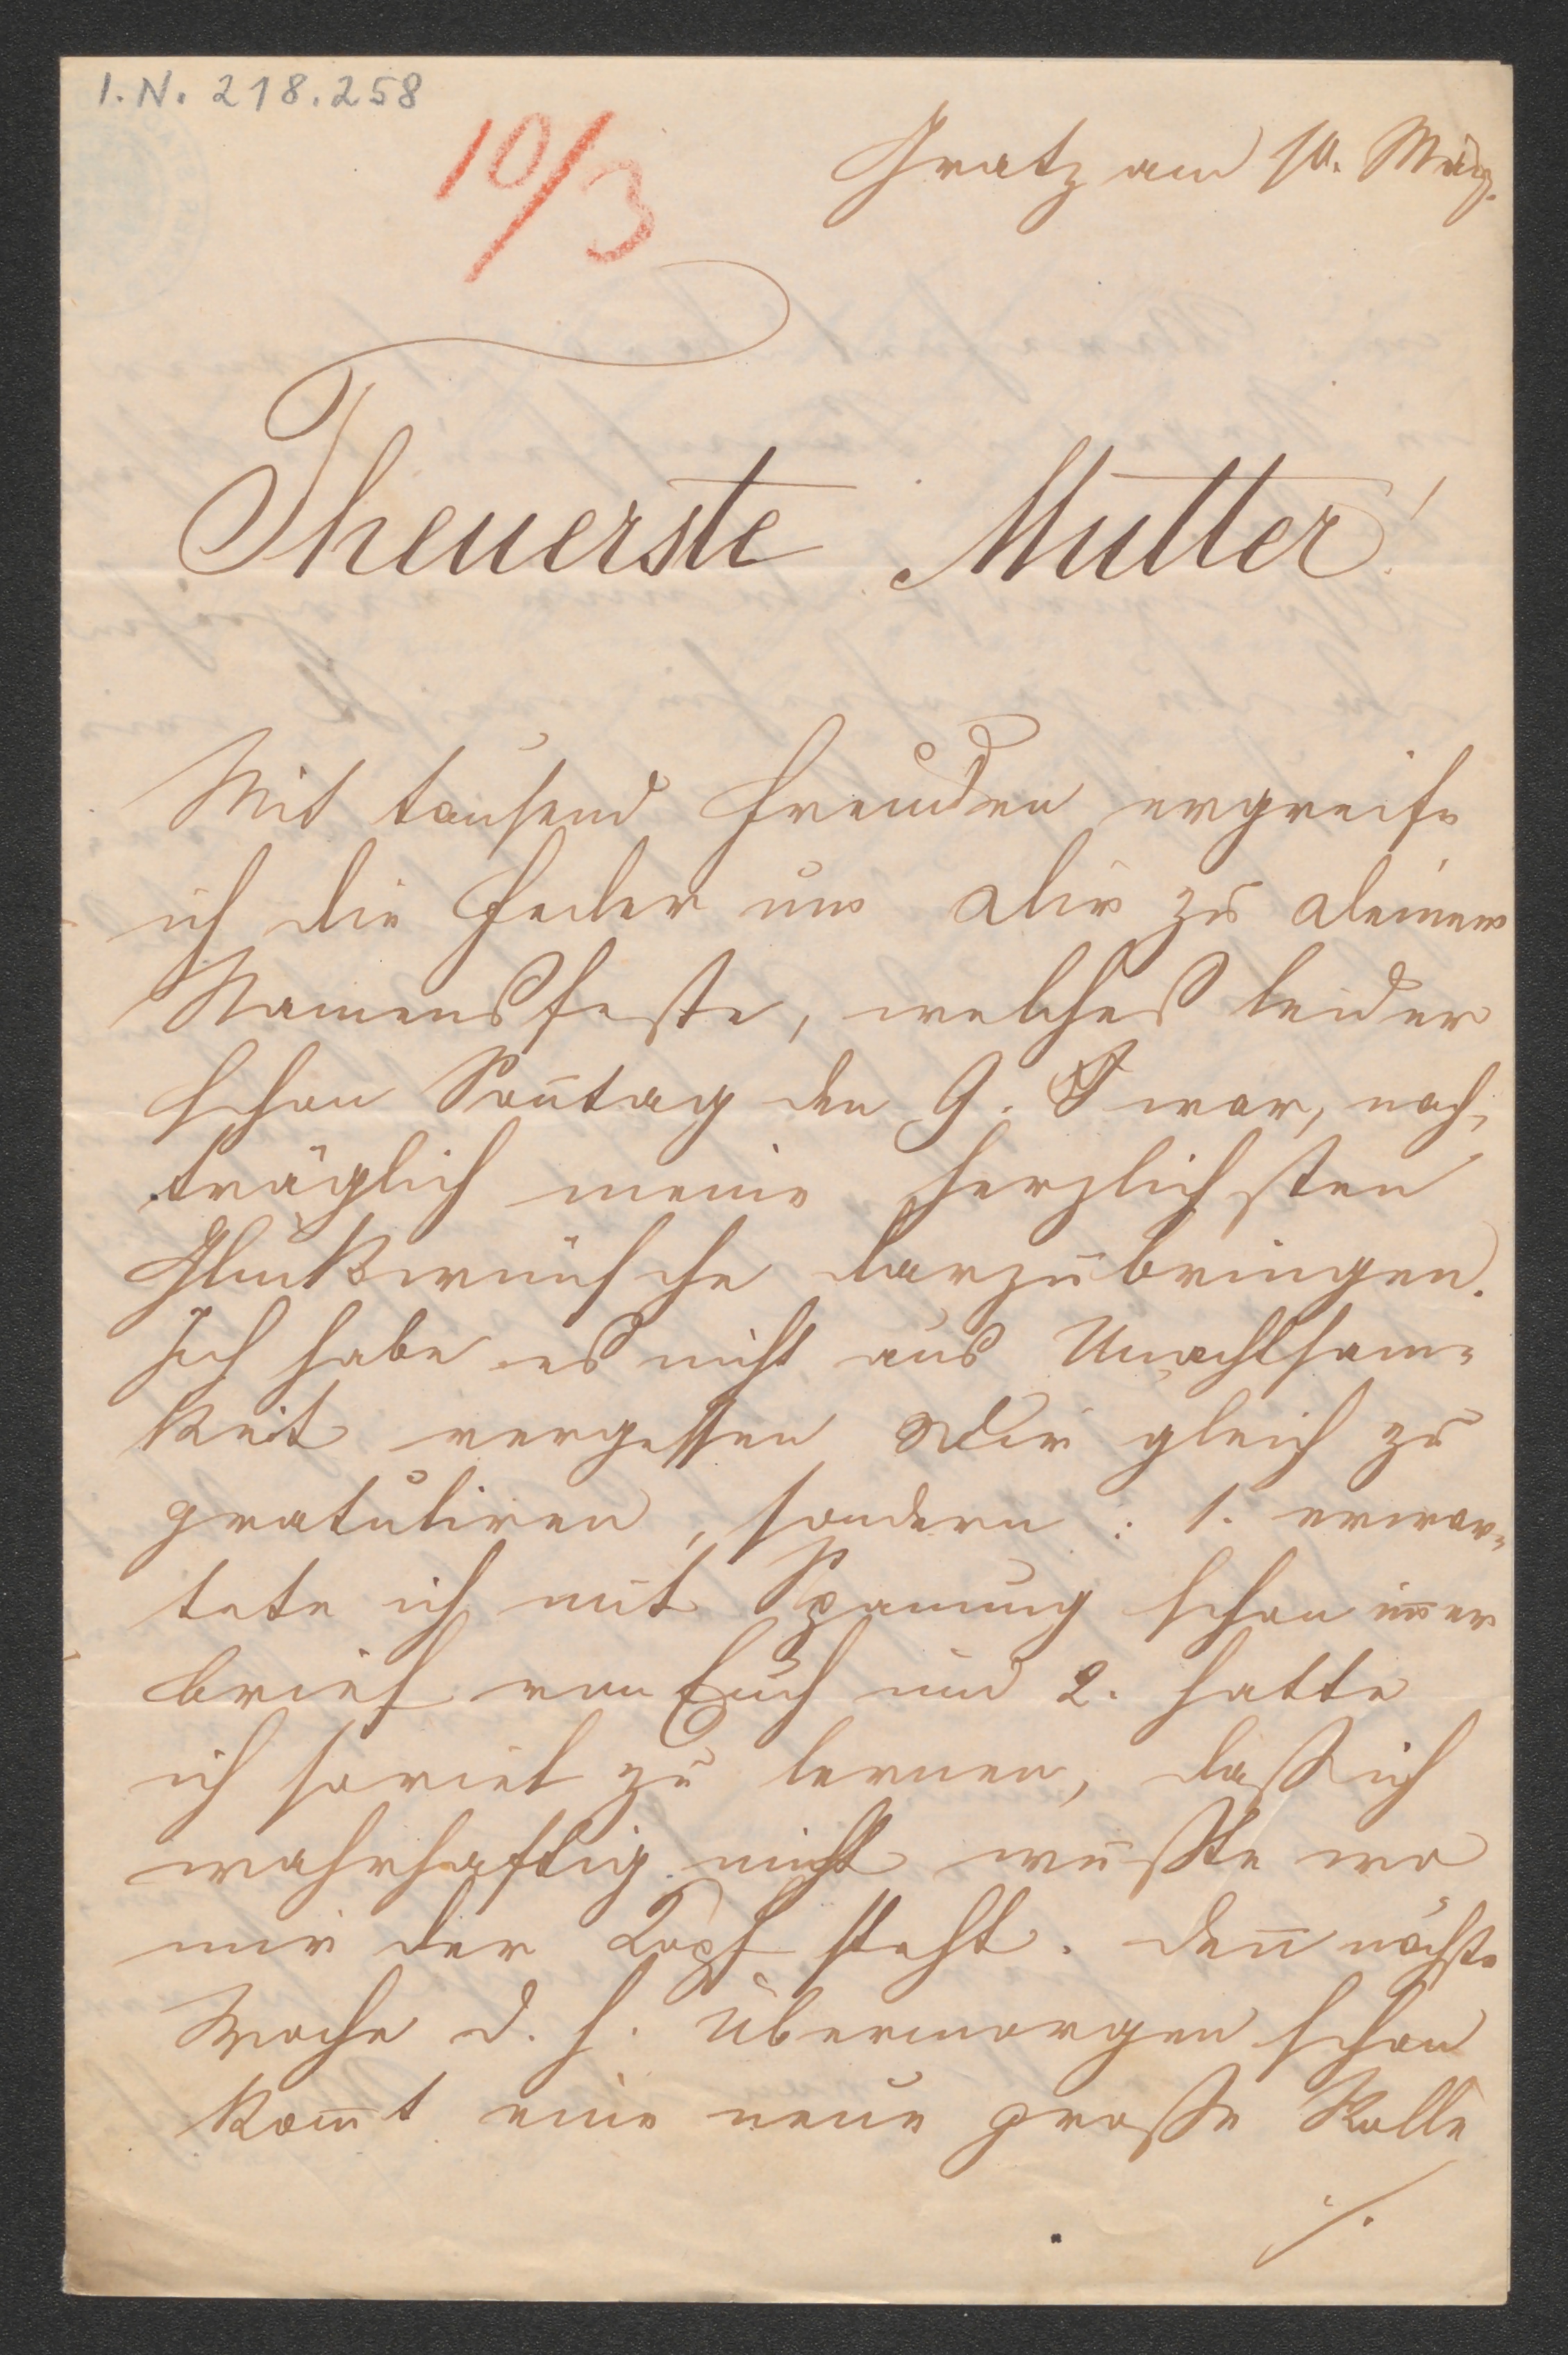 I.N. 218.258
10/3
Gratz am 10. März.
Theuerste Mutter!
Mit tausend Freuden ergreife
ich die Feder um Dir zu Deinem
Namensfeste, welches leider
schon Soñtag den 9. war, nach-
träglich meine herzlichsten
Glückwünsche darzubringen.
Ich habe es nicht aus Unachtsam-
keit vergessen Dir gleich zu
gratuliren, sondern: 1. erwar-
tete ich mit Spanung schon im̅er
Brief von Euch und 2. hatte
ich soviel zu lernen, daß ich
wahrhaftig nicht wußte wo
mir der Kopf steht. Den̅ nächste
Woche d. h. übermorgen schon
kom̅t eine neue große Rolle
./.